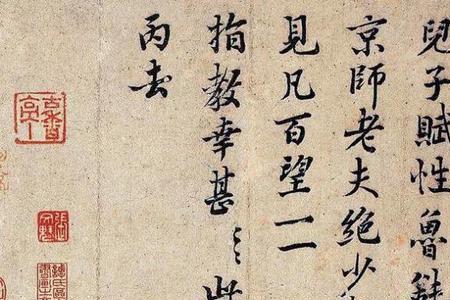 兒子賦性魯鈍
京師老夫絕少
見凡百望一一
指教幸甚〻此
丙去